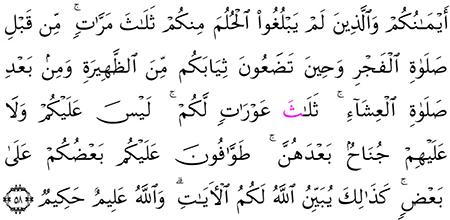 أَيْمَـٰنُكُمْ وَٱلَّذِينَ لَمْ يَبْلُغُوا۟ ٱلْحُلُمَ مِنكُمْ ثَلَـٰثَ مَرَّٰتٍ ۚ مِّن قَبْلِ
صَلَوٰةِ ٱلْفَجْرِ وَحِينَ تَضَعُونَ ثِيَابَكُم مِّنَ ٱلظَّهِيرَةِ وَمِنۢ بَعْدِ
صَلَوٰةِ ٱلْعِشَآءِ ۚ ثَلَـٰثَ عَوْرَٰتٍ لَّكُمْ ۚ لَيْسَ عَلَيْكُمْ وَلَا
عَلَيْهِمْ جُنَاحٌۢ بَعْدَهُنَّ ۚ طَوَّٰفُونَ عَلَيْكُم بَعْضُكُمْ عَلَىٰ
بَعْضٍ ۚ كَذَٰلِكَ يُبَيِّنُ ٱللَّهُ لَكُمُ ٱلْـَٔايَـٰتِ ۗ وَٱللَّهُ عَلِيمٌ حَكِيمٌ ﴿٥٨﴾